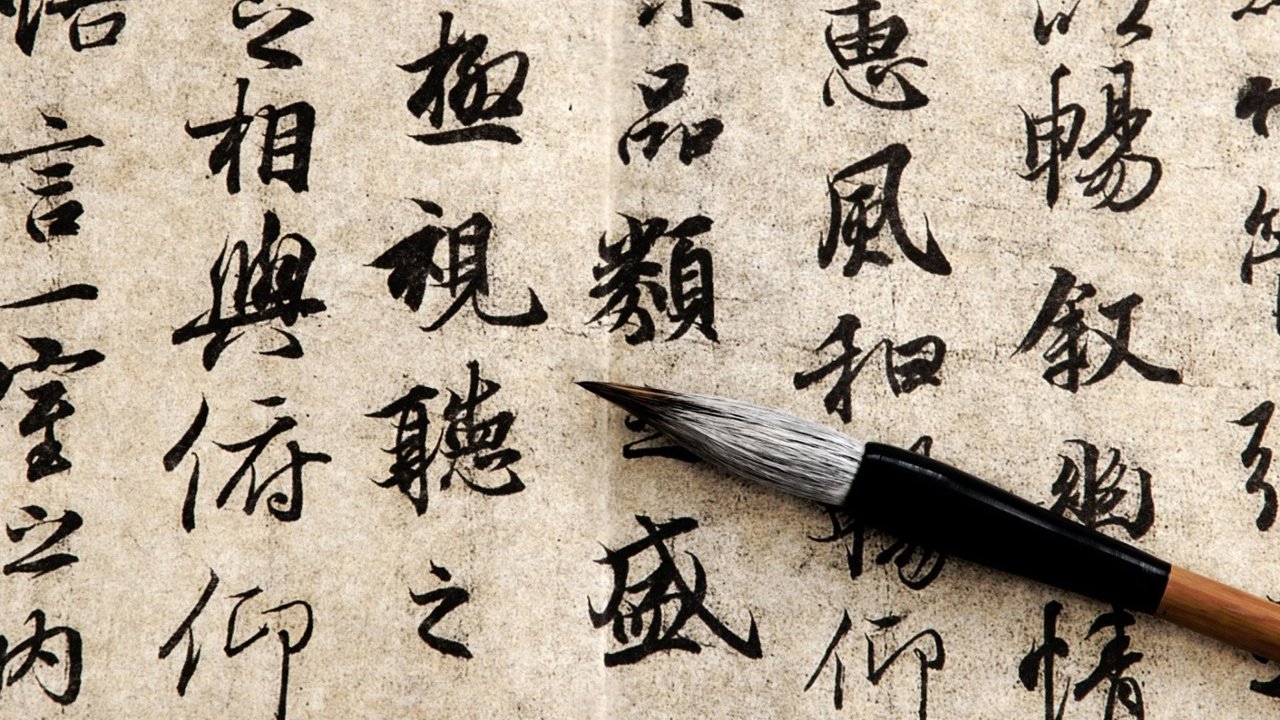 暢叙幽情
惠風和暢仰
品類盛
極視聽之
之相與俯仰
言一室之内